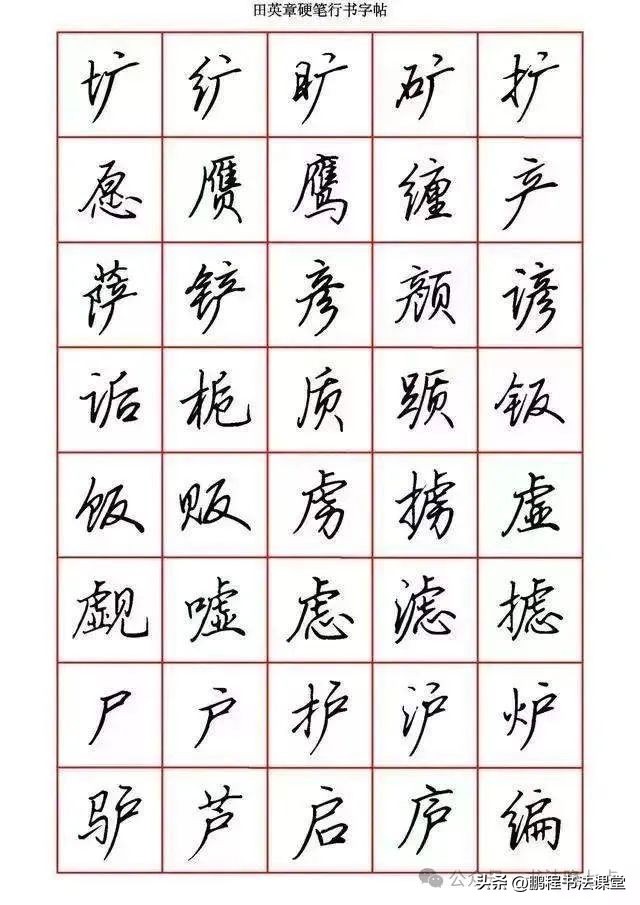 田英章硬笔行书字帖
圹 纩 旷 矿 扩
愿 赝 鹰 缠 产
萨 铲 彦 颜 谚
诟 桅 质 踬 钣
饭 贩 虏 掳 虚
觑 嘘 虑 滤 摅
尸 户 护 沪 炉
驴 芦 启 庐 编
公众号
头条@鹏程书法课堂